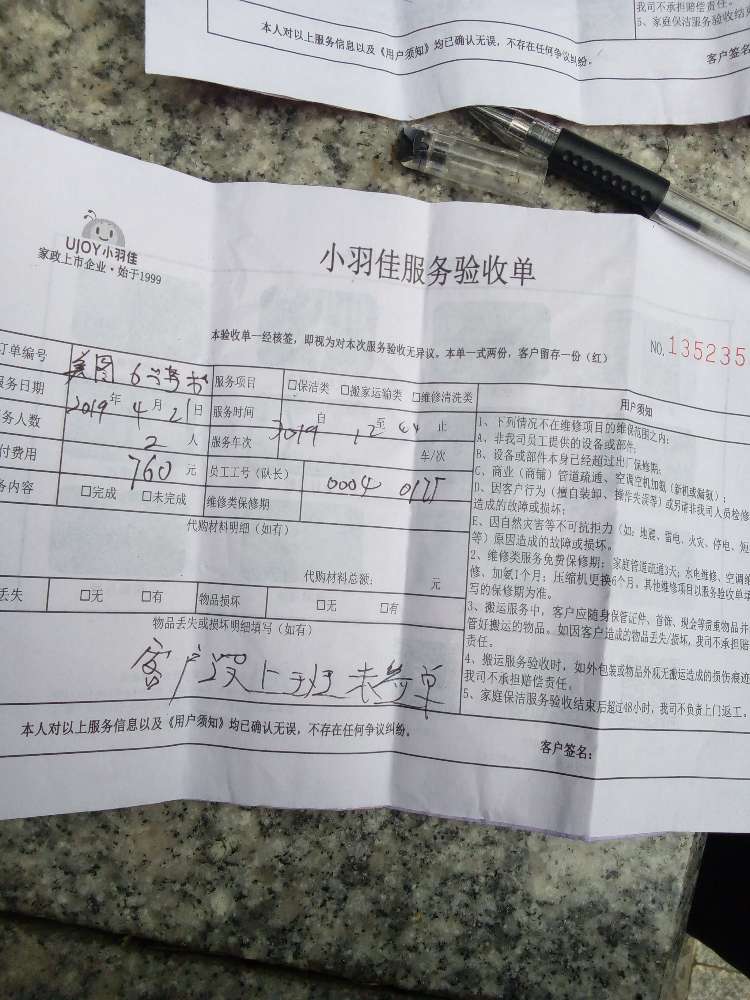 我司不承担赔偿责任。
5、家庭保洁服务验收结束
本人对以上服务信息以及《用户须知》均已确认无误，不存在任何争议纠纷。
客户签名
UJOY小羽佳
家政上市企业·始于1999
小羽佳服务验收单
本验收单一经核签，即视为对本次服务验收无异议。本单一式两份，客户留存一份（红）
NO.135235
订单编号
美图6
服务项目 □保洁类 □搬家运输类 □维修清洗类
用户须知
服务日期 2019年4月21日
服务时间 自 至 止
务人数 2人
服务车次 车/次
付费用 760元
员工工号（队长） 0004 0175
务内容 □完成 □未完成
维修类保修期
代购材料明细（如有）
代购材料总额： 元
丢失 □无 □有 物品损坏 □无 □有
物品丢失或损坏明细填写（如有）
客户没上班未签单
1、下列情况不在维修项目的维保范围之内：
A、非我司员工提供的设备或部件；
B、设备或部件本身已经超过出厂保修期；
C、商业（商铺）管道疏通、空调空机加氨（新机或漏氨）；
D、因客户行为（擅自装卸、操作失误等）或另请非我司人员检修
造成的故障或损坏；
E、因自然灾害等不可抗拒力（如：地震、雷电、火灾、停电、短
等）原因造成的故障或损坏。
2、维修类服务免费保修期：家庭管道疏通3天；水电维修、空调维
修、加氨1个月；压缩机更换6个月。其他维修项目以服务验收单填
写的保修期为准。
3、搬运服务中，客户应随身保管证件、首饰、现金等贵重物品并
管好搬运的物品。如因客户造成的物品丢失/损坏，我司不承担赔
责任。
4、搬运服务验收时，如外包装或物品外观无搬运造成的损伤痕迹
我司不承担赔偿责任。
5、家庭保洁服务验收结束后超过48小时，我司不负责上门返工。
本人对以上服务信息以及《用户须知》均已确认无误，不存在任何争议纠纷。
客户签名：